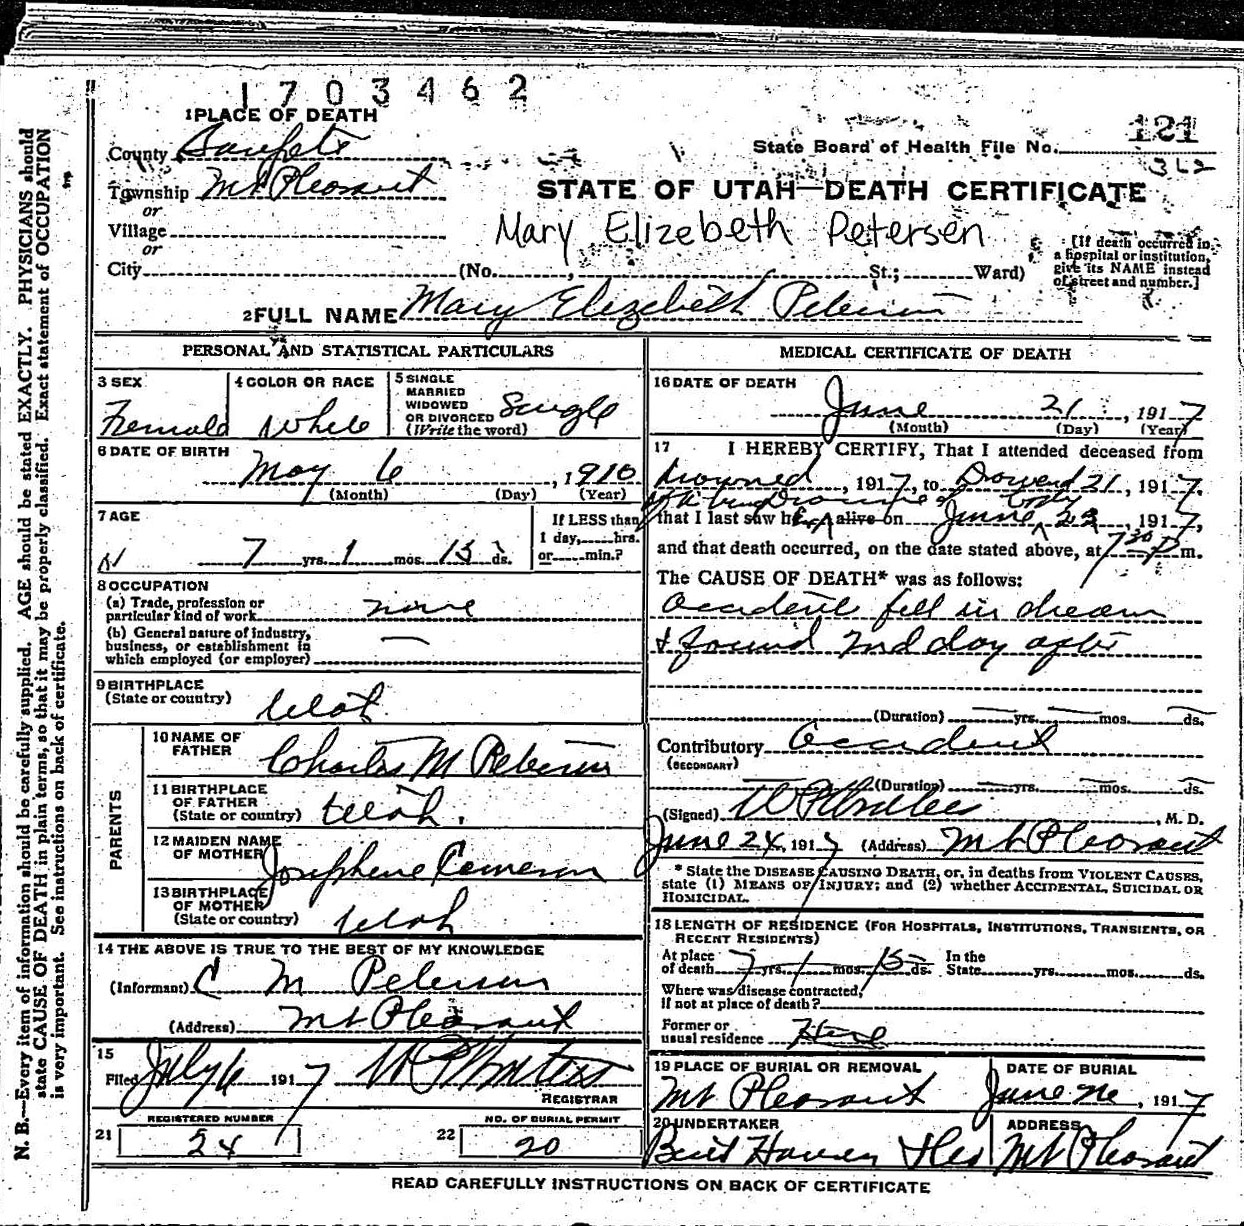 1703462
1 PLACE OF DEATH
County Sanpete
Township Mt Pleasant
or
Village
or
City (No. , St.; Ward)
State Board of Health File No. 121
362
STATE OF UTAH—DEATH CERTIFICATE
Mary Elizebeth Petersen
[If death occurred in
a hospital or institution,
give its NAME instead
of street and number.]
2 FULL NAME Mary Elizebeth Petersen
PERSONAL AND STATISTICAL PARTICULARS
3 SEX
Female
4 COLOR OR RACE
White
5 SINGLE
MARRIED
WIDOWED
OR DIVORCED
(Write the word)
Single
6 DATE OF BIRTH
May 6, 1910
(Month) (Day) (Year)
7 AGE
7 yrs. 1 mos. 15 ds.
If LESS than
1 day, hrs.
or min.?
8 OCCUPATION
(a) Trade, profession or
particular kind of work none
(b) General nature of industry,
business, or establishment in
which employed (or employer) —
9 BIRTHPLACE
(State or country) Utah
PARENTS
10 NAME OF
FATHER Charles M Petersen
11 BIRTHPLACE
OF FATHER
(State or country) Utah.
12 MAIDEN NAME
OF MOTHER Josephene Cameron
13 BIRTHPLACE
OF MOTHER
(State or country) Utah
14 THE ABOVE IS TRUE TO THE BEST OF MY KNOWLEDGE
(Informant) C M Petersen
(Address) Mt Pleasant
15
Filed July 6 1917
REGISTRAR
REGISTERED NUMBER
21 24
NO. OF BURIAL PERMIT
22 20
MEDICAL CERTIFICATE OF DEATH
16 DATE OF DEATH
June 21, 1917
(Month) (Day) (Year)
17 I HEREBY CERTIFY, That I attended deceased from
Drowned, 1917, to Drowned 21, 1917.
body
that I last saw her alive on June 23, 1917,
and that death occurred, on the date stated above, at 7 30 P m.
The CAUSE OF DEATH* was as follows:
Accidente fell in stream
& found 2nd day after
(Duration) yrs. mos. ds.
Contributory Accident
(SECONDARY)
(Duration) yrs. mos. ds.
(Signed) , M. D.
June 24, 1917 (Address) Mt Pleasant
* State the DISEASE CAUSING DEATH, or, in deaths from VIOLENT CAUSES,
state (1) MEANS OF INJURY; and (2) whether ACCIDENTAL, SUICIDAL OR
HOMICIDAL.
18 LENGTH OF RESIDENCE (FOR HOSPITALS, INSTITUTIONS, TRANSIENTS, OR
RECENT RESIDENTS)
At place
of death 7 yrs. 1 mos. 15 ds. In the
State yrs. mos. ds.
Where was disease contracted,
if not at place of death?
Former or
usual residence Here
19 PLACE OF BURIAL OR REMOVAL
Mt Pleasant
DATE OF BURIAL
June 1917
20 UNDERTAKER
Hansen
ADDRESS
Mt Pleasant
READ CAREFULLY INSTRUCTIONS ON BACK OF CERTIFICATE
N. B.—Every item of information should be carefully supplied. AGE should be stated EXACTLY. PHYSICIANS should
state CAUSE OF DEATH in plain terms, so that it may be properly classified. Exact statement of OCCUPATION
is very important. See instructions on back of certificate.